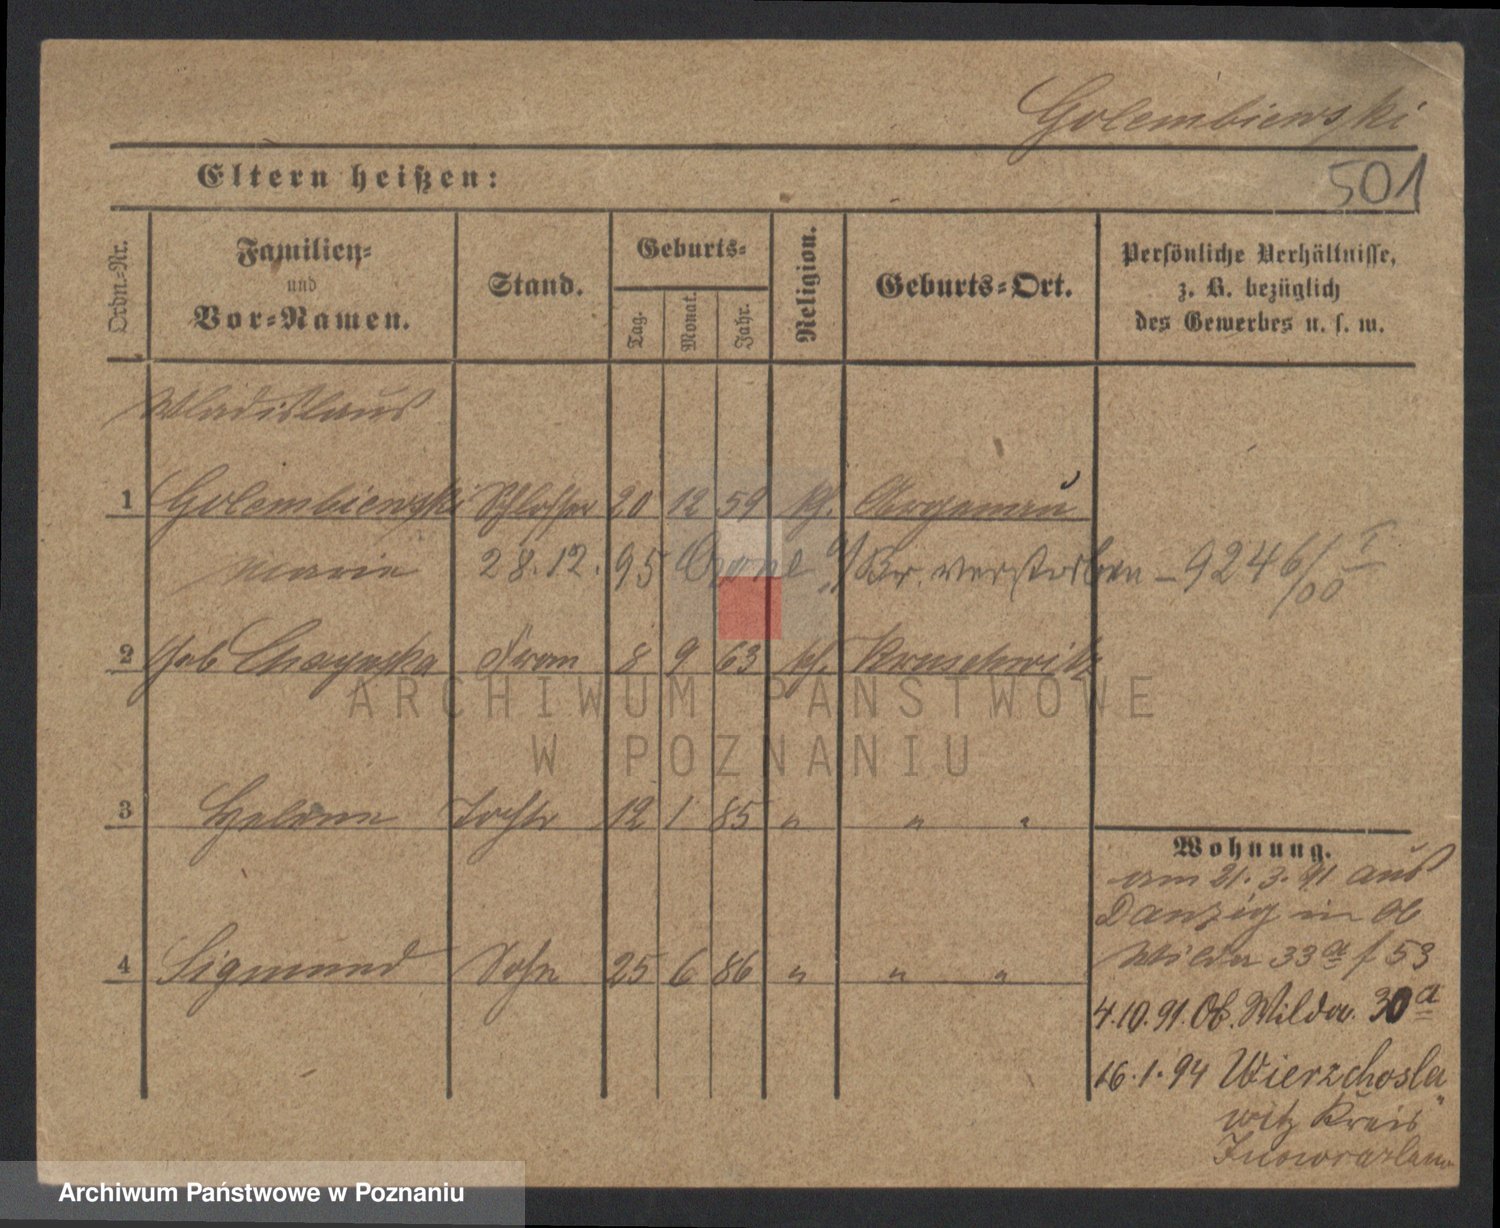 Golembiewski
Eltern heißen:
501
Ordn.-Nr.
Familien-
und
Vor-Namen.
Stand.
Geburts-
Tag.
Monat.
Jahr.
Religion.
Geburts-Ort.
Persönliche Verhältnisse,
z. B. bezüglich
des Gewerbes u. s. w.
Wladislaus
1 Golembiewski Schlosser 20 12 59 kth. Argenau
Marie 28.12.95 Br. verstorben - 9246/00 I
2 geb Frau 8 9 63 kth. Kruschwitz
ARCHIWUM PAŃSTWOWE
W POZNANIU
3 Helene Tochter 12 1 85 " " "
4 Sigmund Sohn 25 6 86 " " "
Wohnung.
am 21.3.91 aus
Danzig in Ob
Wilda 33a f 53
4.10.91. Ob. Wilda. 30a
16.1.94 Wierzchosla
witz Kreis
Inowrazlaw
Archiwum Państwowe w Poznaniu